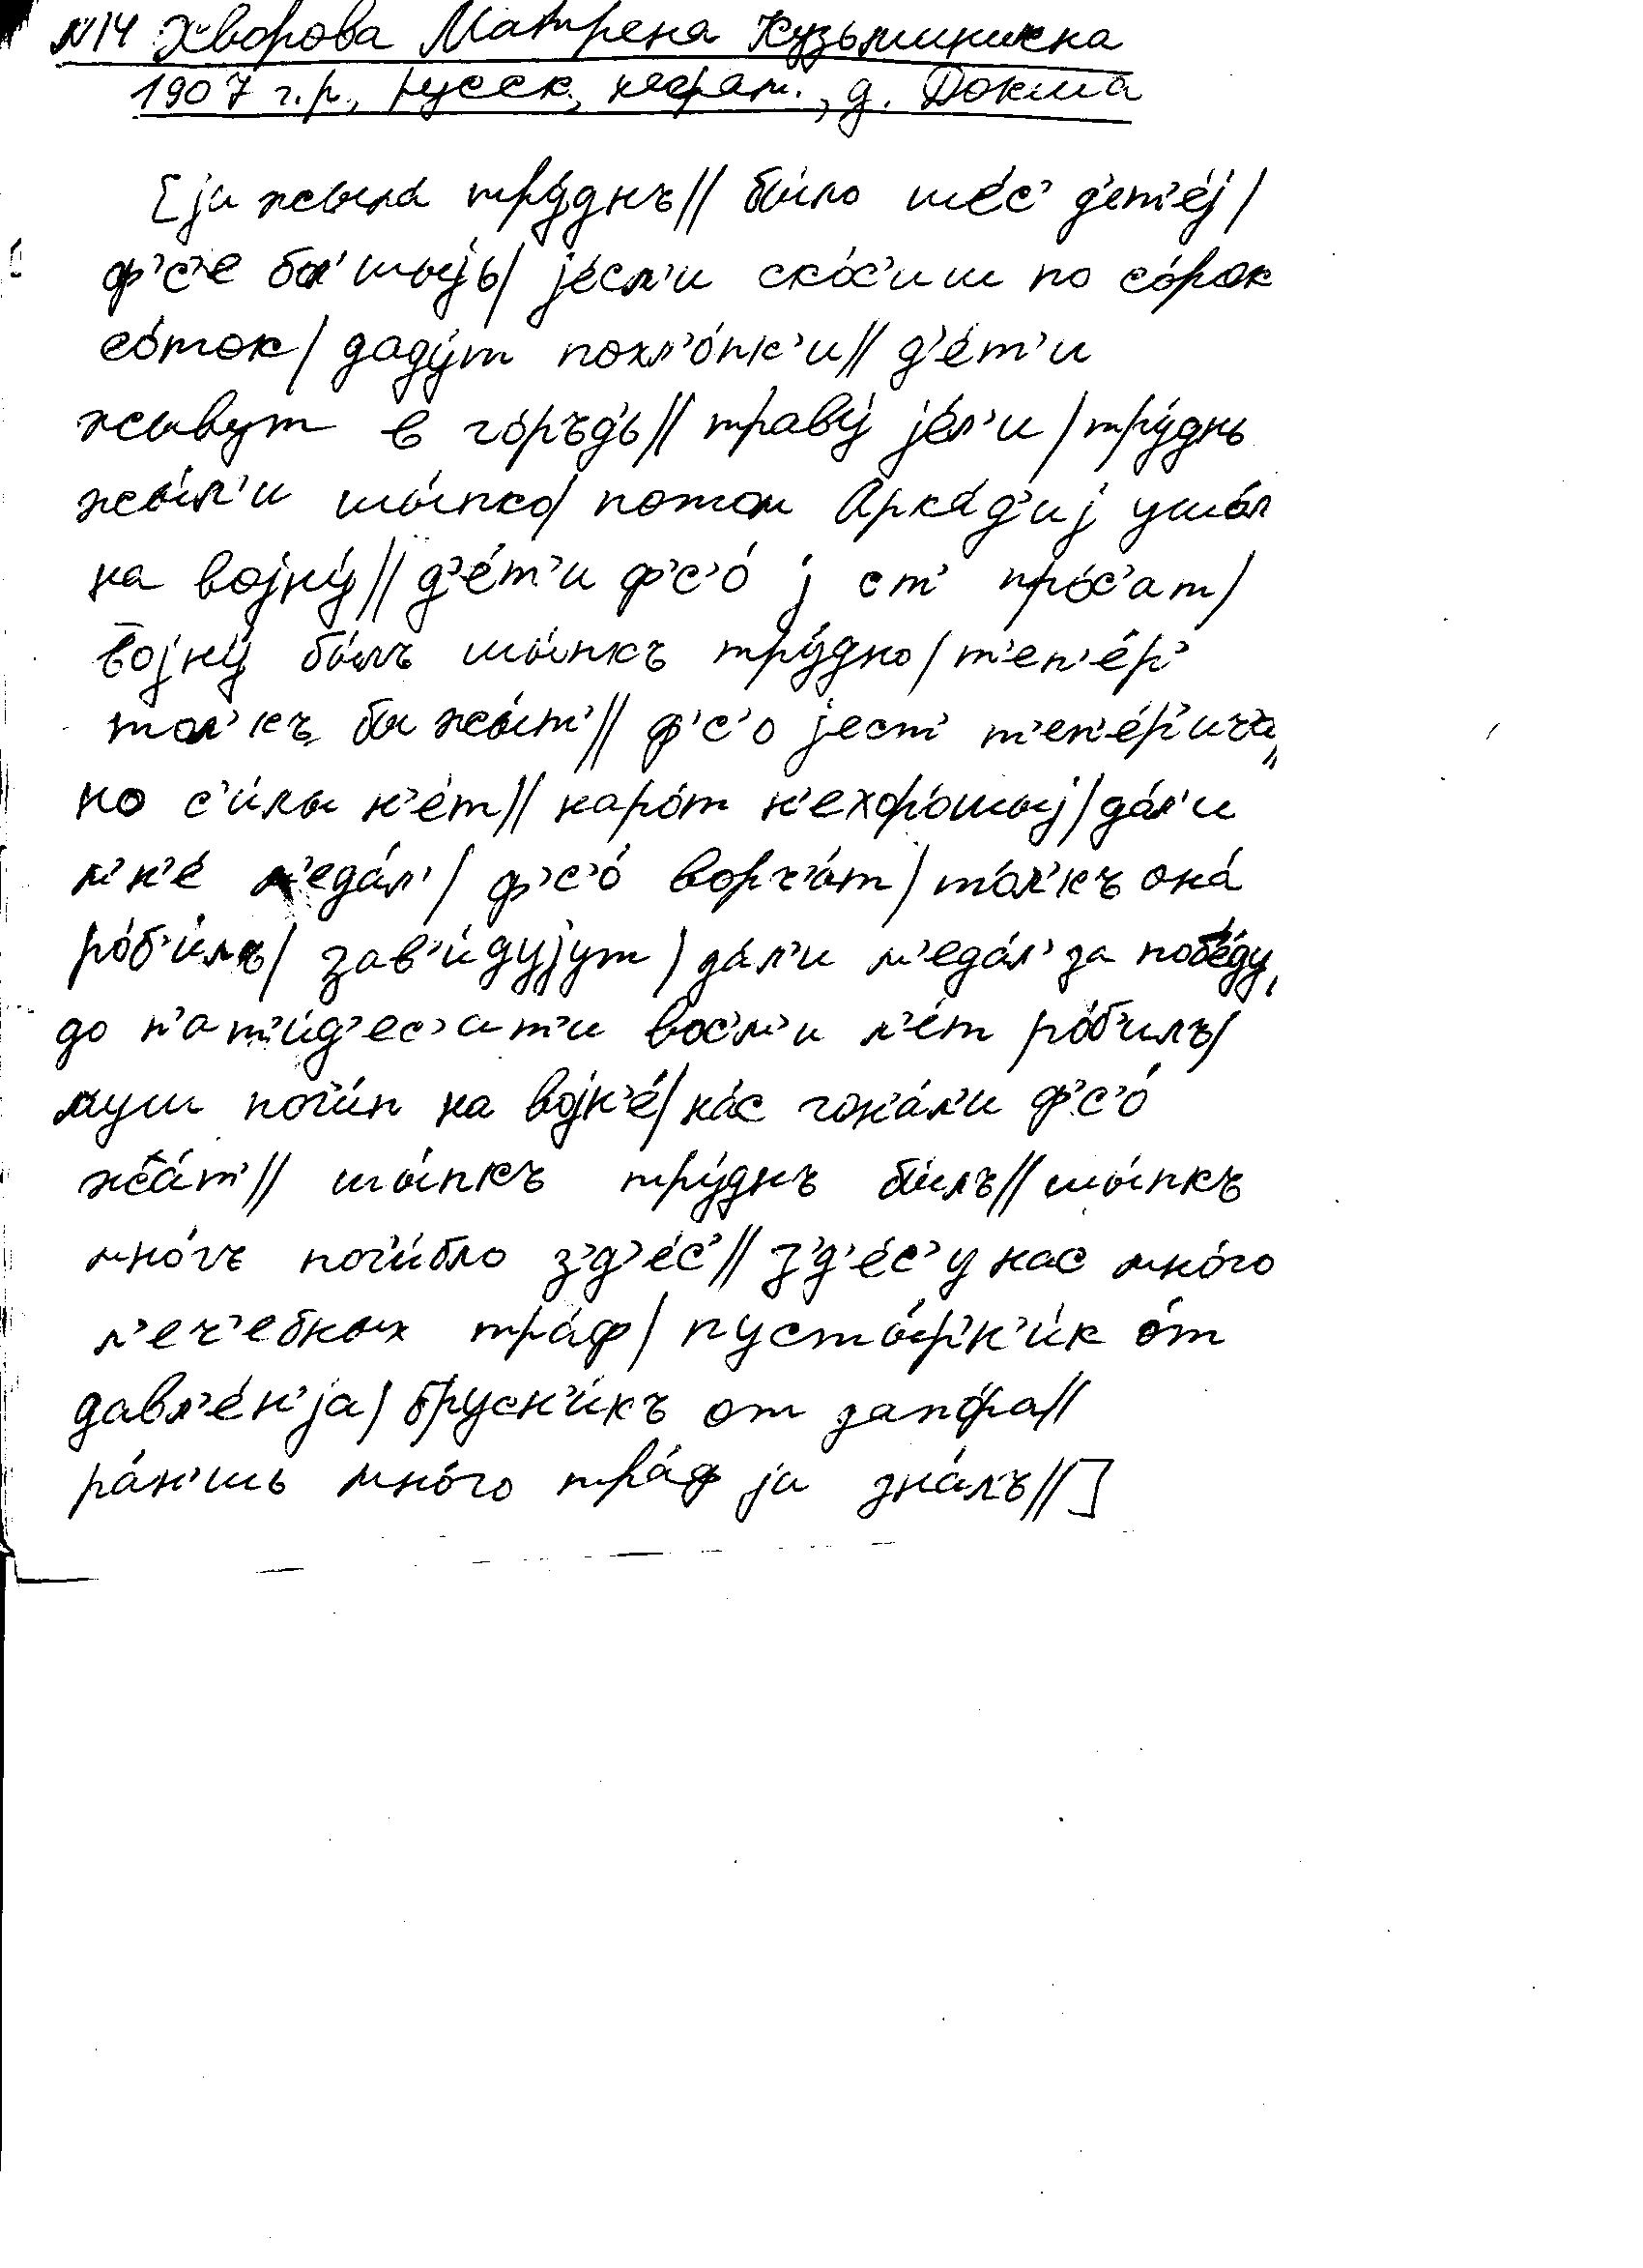 №14 Хворова Матрена Кузьминична
1907 г.р., русск., неграм., д. Докша
[jи жыла́ тру́днъ// бы́ло ше́с' д'ет'е́j/
ф'с'е бо́л'шыjь/ jе́сл'и ско́с'иш по со́рок
со́ток/ даду́т похл'о́пк'и// д'е́т'и
жывут в го́ръд'ь// траву́ jе́л'и/ тру́днь
жы́л'и шы́пко/ потом Арка́д'иj ушо́л
на воjну́// д'е́т'и ф'с'о́ j ст' про́с'ат/
воjну́ бы́лъ шы́пкъ тру́дно/ т'еп'е́р'
тол'къ бы жы́т'// ф'с'о jест' т'еп'е́р'ича,
но с'и́лы н'е́т// наро́т н'ехоро́шыj/ да́л'и
м'н'е́ м'еда́л'/ ф'с'о́ ворч'а́т/ то́л'къ она́
ро́б'и́лъ/ зав'и́дуjут/ да́л'и м'еда́л' за побе́ду,
до п'ат'и́д'ес'ат'и вос'м'и л'е́т ро́б'илъ/
муш пог'и́п на воjн'е́/ на́с гон'а́л'и ф'с'о́
жа́т'// шы́пкъ тру́днъ бы́лъ// шы́пкъ
мно́гъ поги́бло з'д'е́с'// з'д'е́с' у нас мно́го
л'еч'ебных тра́ф/ пусты́рн'и́к о́т
давл'е́н'jа/ брусн'и́къ от запо́ра//
ра́н'шь мно́го тра́ф jи зна́лъ//]